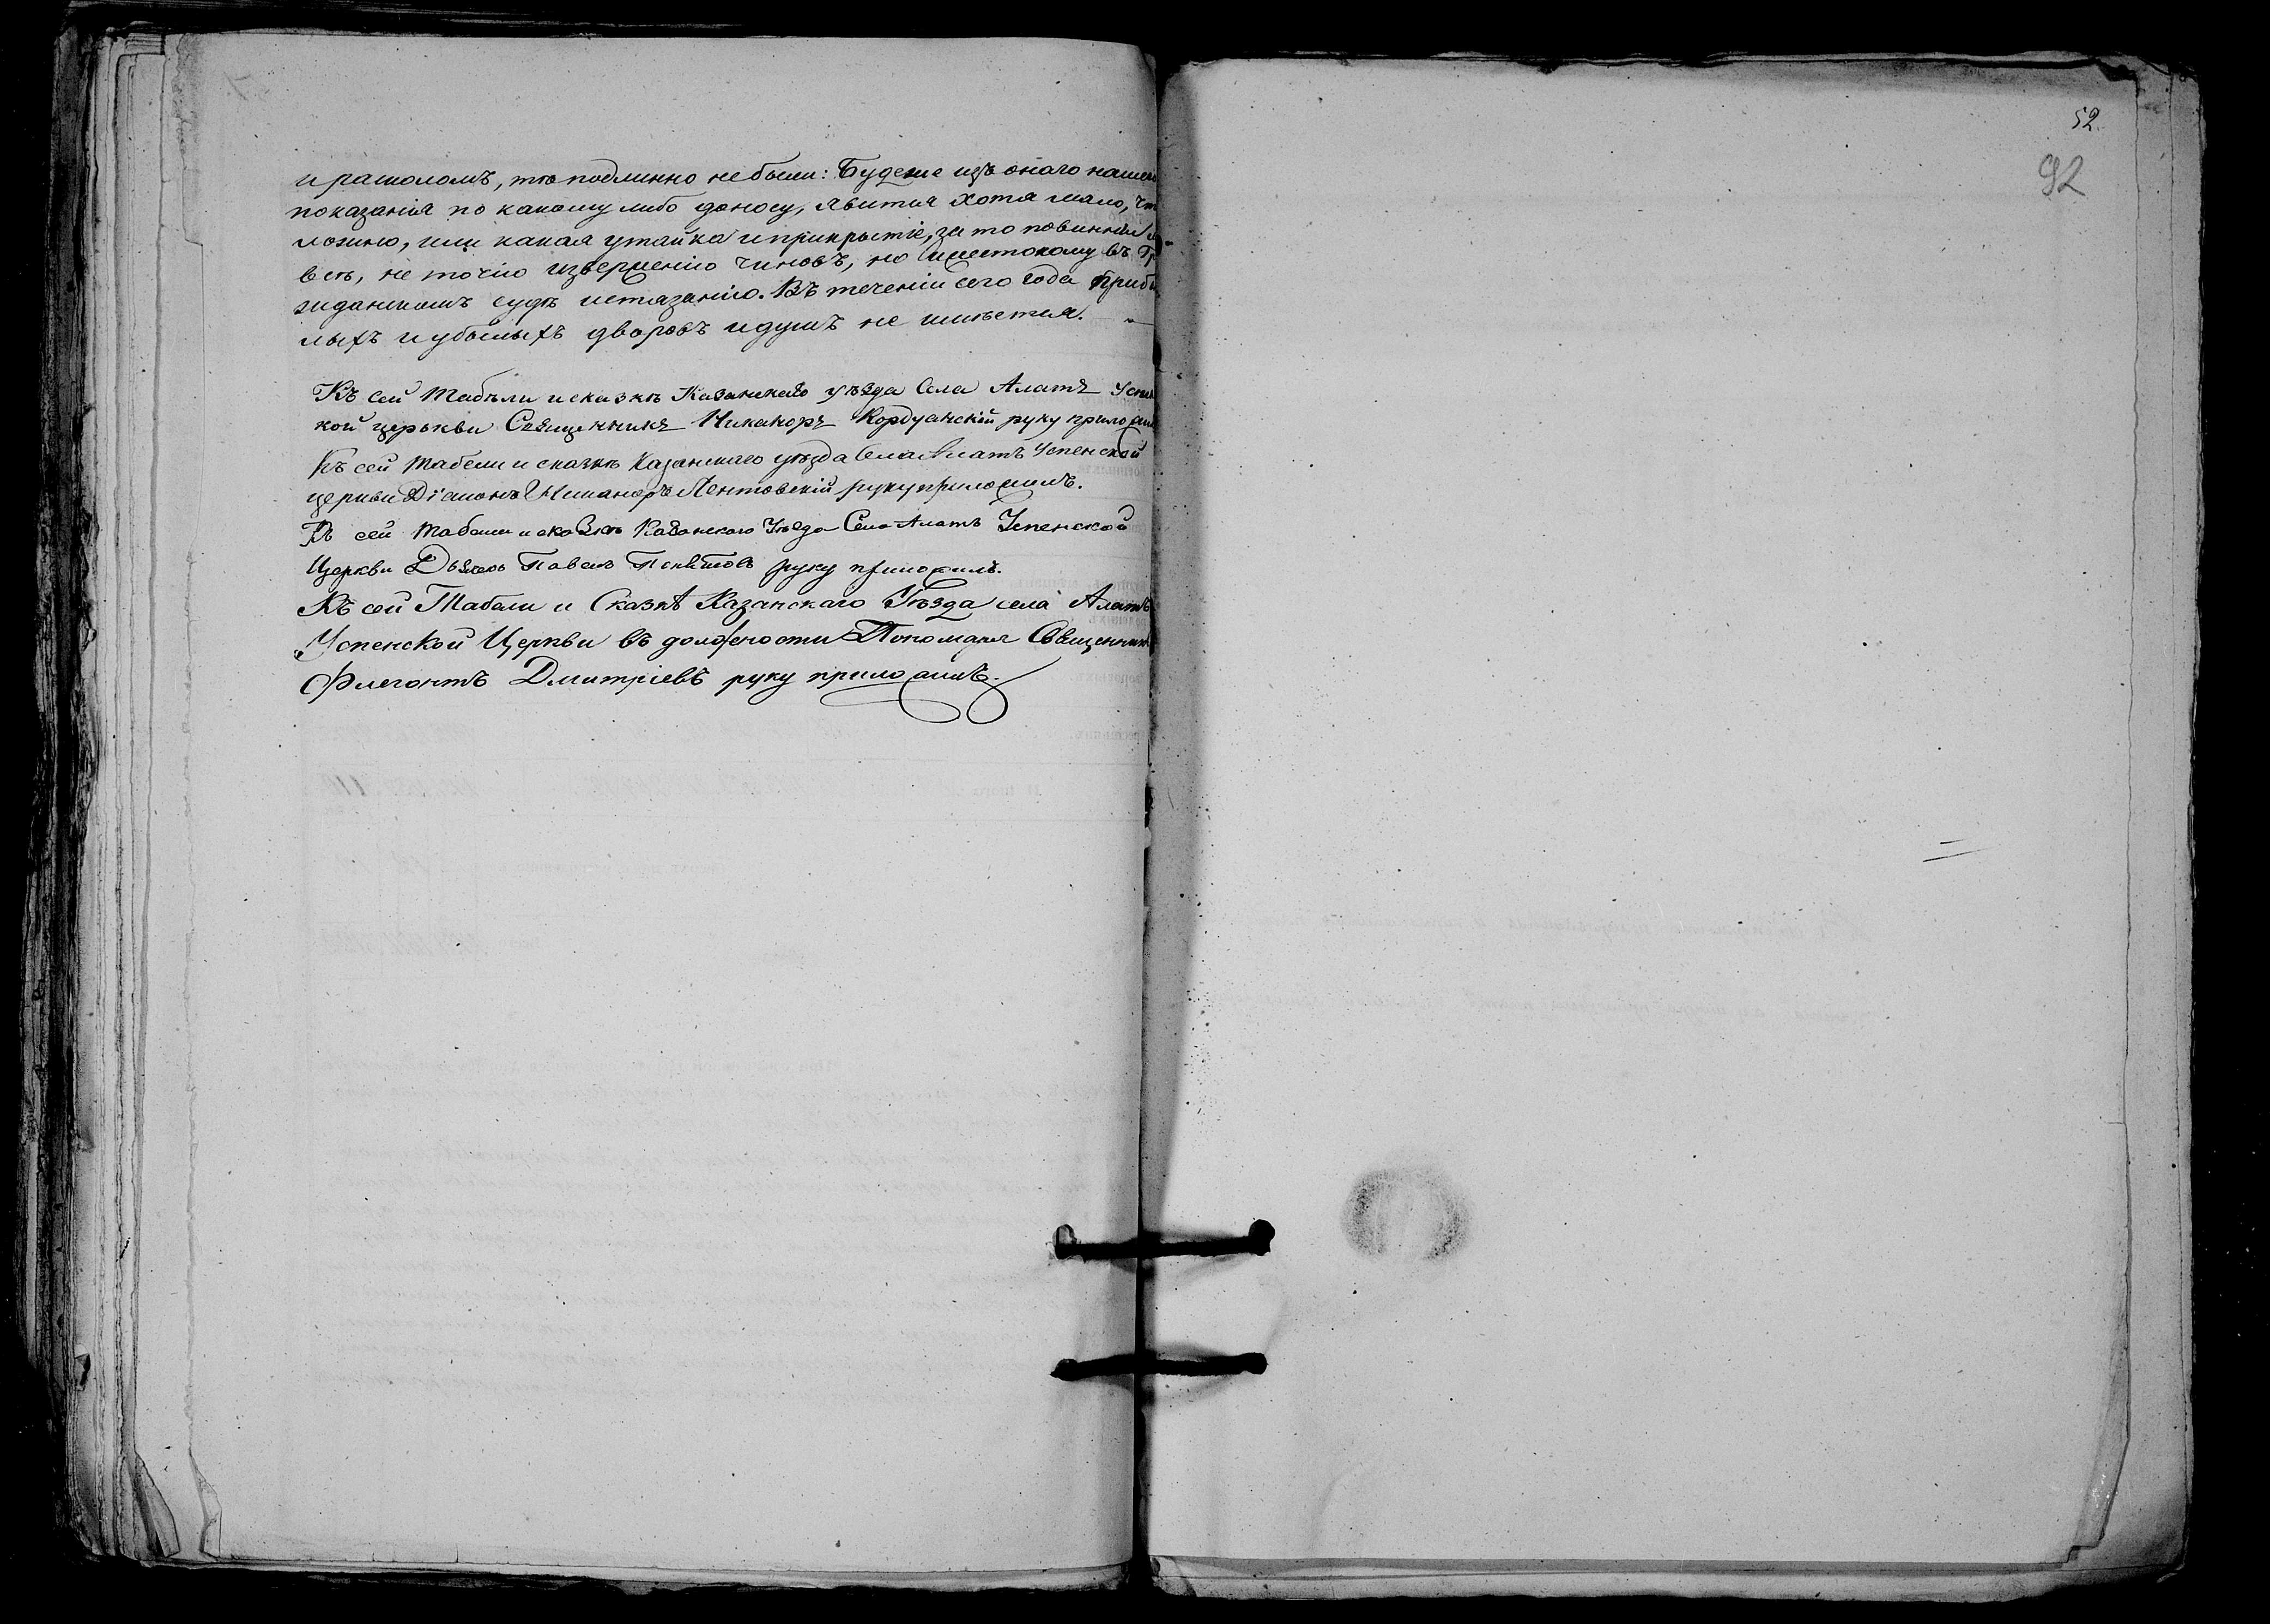 и расколомъ, то подлинно не были: Будеже изъ онаго нашего
показанія по какому либо доносу, явится хотя мало, что
ложно, или какая утайка и прикрытіе, за то повинны
весть, не точію изверженію чиновъ, но и жестокому въ Гр
жданскомъ судѣ истязанію. Въ теченіи сего года прибы
лыхъ и убылыхъ дворовъ и душъ не имѣется.
Къ сей табѣли и сказкѣ Казанскаго уѣзда Села Алатъ Успен
кой церькви Священникъ Никаноръ Кордуанскій руку приложи
Къ сей табели и сказкѣ Казанскаго уѣзда Села Алатъ Успенской
церкви Діаконъ Никаноръ Лентовскій руку приложилъ.
Къ сей табели и сказкѣ Казанскаго Уѣзда Села Алатъ Успенской
Церкви Дьячекъ Павелъ руку приложилъ.
Къ сей Табели и Сказкѣ Казанскаго Уѣзда села Алатъ
Успенской Церкви въ должности Пономаря Священникъ
Флегонтъ Дмитріевъ руку приложилъ.
52
92